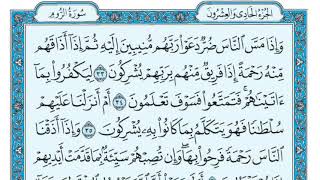 الجزء الحادي والعشرون
سورة الروم
وَإِذَا مَسَّ النَّاسَ ضُرٌّ دَعَوْا۟ رَبَّهُم مُّنِيبِينَ إِلَيْهِ ثُمَّ إِذَآ أَذَاقَهُم
مِّنْهُ رَحْمَةً إِذَا فَرِيقٌ مِّنْهُم بِرَبِّهِمْ يُشْرِكُونَ ٣٣ لِيَكْفُرُوا۟ بِمَآ
ءَاتَيْنَٰهُمْ ۚ فَتَمَتَّعُوا۟ فَسَوْفَ تَعْلَمُونَ ٣٤ أَمْ أَنزَلْنَا عَلَيْهِمْ
سُلْطَٰنًا فَهُوَ يَتَكَلَّمُ بِمَا كَانُوا۟ بِهِۦ يُشْرِكُونَ ٣٥ وَإِذَآ أَذَقْنَا
النَّاسَ رَحْمَةً فَرِحُوا۟ بِهَا ۖ وَإِن تُصِبْهُمْ سَيِّئَةٌۢ بِمَا قَدَّمَتْ أَيْدِيهِمْ